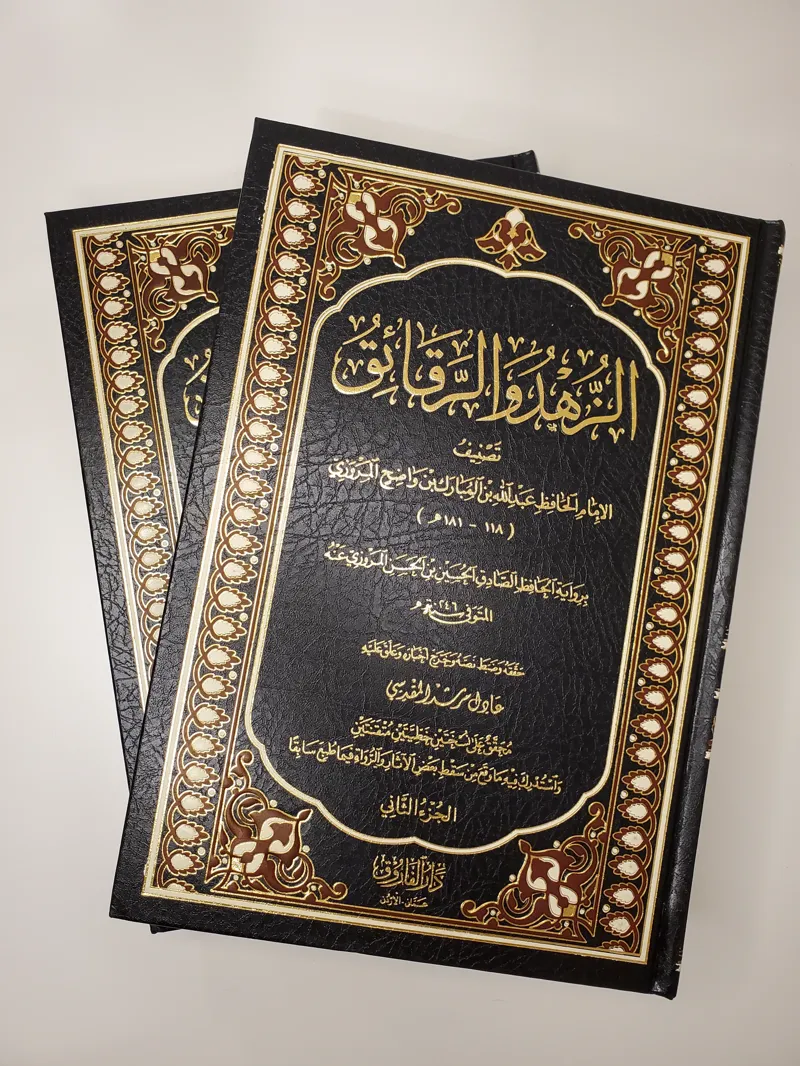 الزُّهْدُ وَالرَّقَائِقُ
تَصْنِيفُ
الإِمَامِ الحَافِظِ عَبْدِ اللهِ بْنِ المُبَارَكِ بْنِ وَاضِحٍ المَرْوَزِيِّ
( ١١٨ - ١٨١ هـ )
بِرِوَايَةِ الحَافِظِ الصَّادِقِ الحُسَيْنِ بْنِ الحَسَنِ المَرْوَزِيِّ عَنْهُ
المتوفى سنة ٢٤٦ هـ
حَقَّقَهُ وَضَبَطَ نَصَّهُ وَخَرَّجَ أَخْبَارَهُ وَعَلَّقَ عَلَيْهِ
عَادِل مُرْشِد المَقْدِسِي
مُحَقَّقٌ عَلَى نُسْخَتَيْنِ خَطِّيَّتَيْنِ مُتْقَنَتَيْنِ
وَاسْتُدْرِكَ فِيهِ مَا وَقَعَ مِنْ سَقْطِ بَعْضِ الآثَارِ وَالرُّوَاةِ فِيمَا طُبِعَ سَابِقًا
الجُزْءُ الثَّانِي
دَارُ الفَارُوقِ
عَمَّان - الأردن